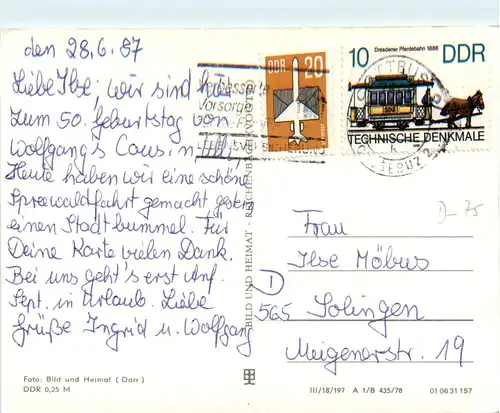 den 28.6.87
Liebe Ilse, wir sind hier
zum 50. Geburtstag von
Wolfgang's Cousin
Heute haben wir eine schöne
Spreewaldfahrt gemacht gestern
einen Stadtbummel. Für
Deine Karte vielen Dank.
Bei uns geht's erst Anf.
Sept. in Urlaub. Liebe
Grüße Ingrid u. Wolfgang
Foto: Bild und Heimat (Darr)
DDR 0,25 M
BILD UND HEIMAT · REICHENBACH
DDR 20
Dresdener Pferdebahn 1886
10 DDR
TECHNISCHE DENKMALE
D-75
Frau
Ilse Möbus
D
565 Solingen
Meigenerstr. 19
III/18/197 A 1/B 435/78 01 06 31 157